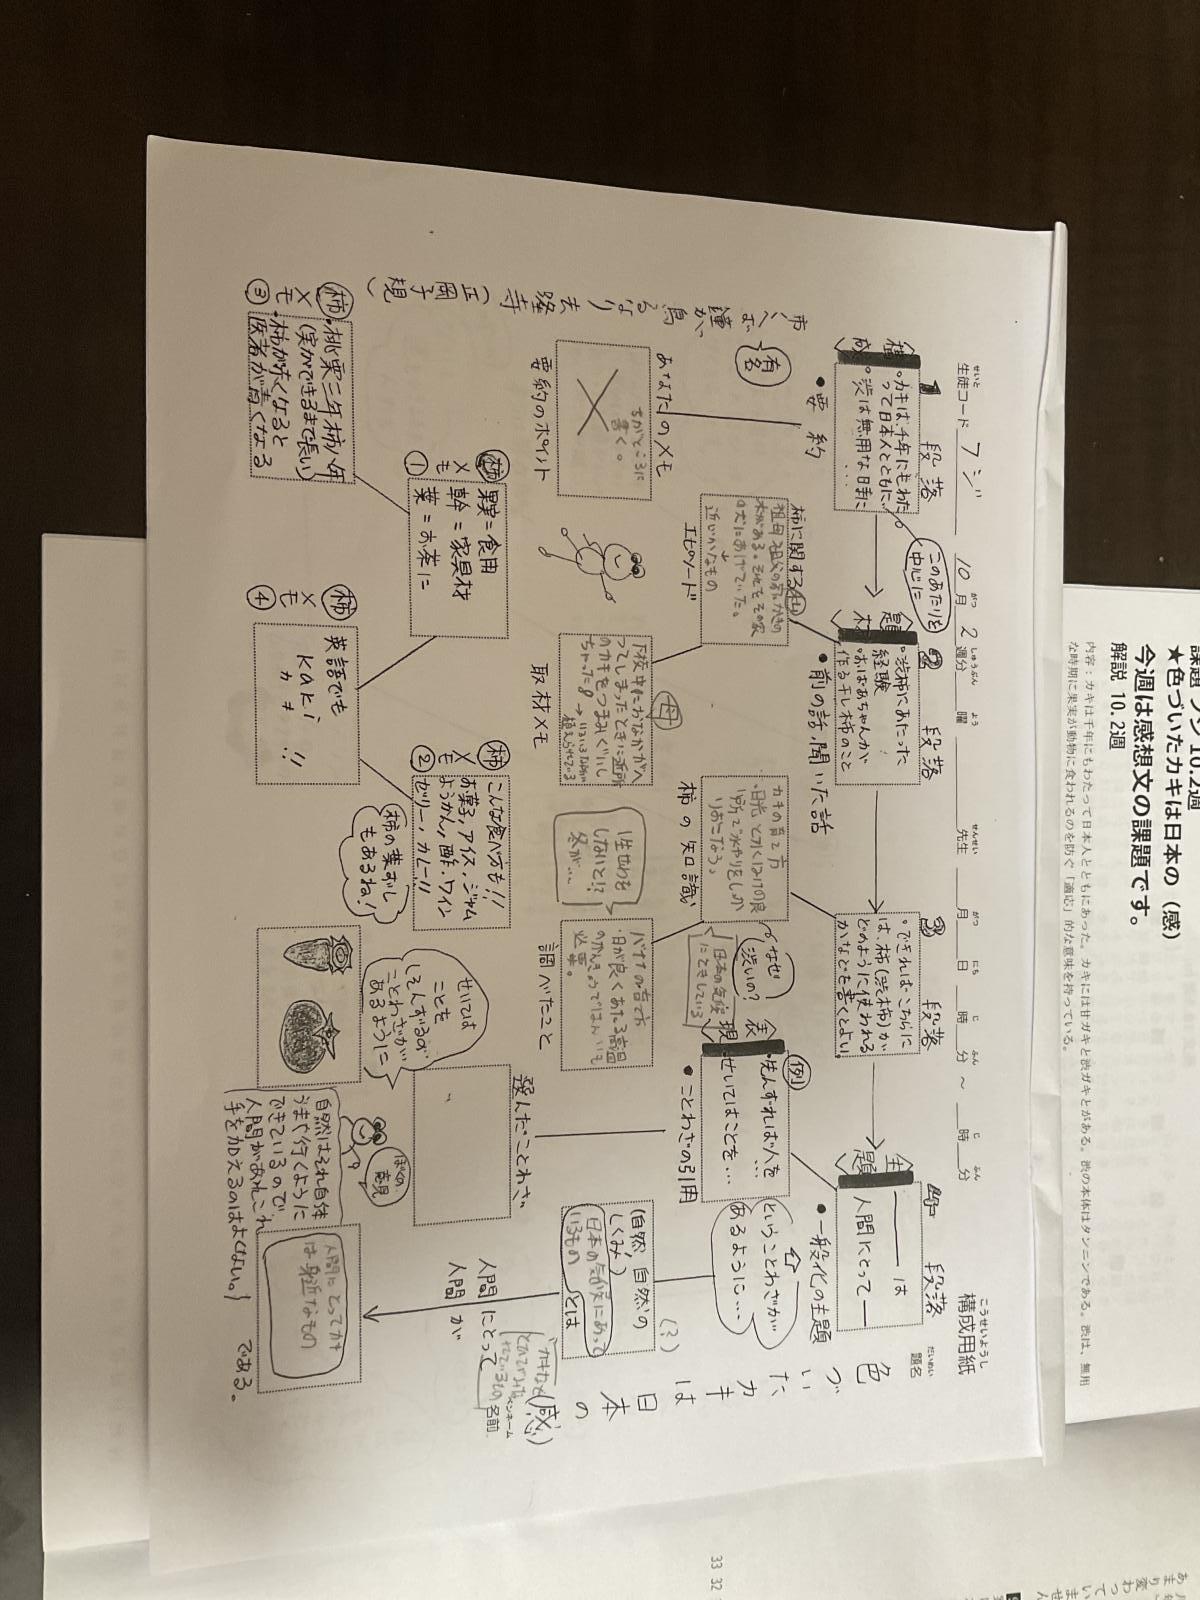 ★色づいたカキは日本の（感）
今週は感想文の課題です。
解説 10.2週
内容：カキは千年にもわたって日本人とともにあった。カキには甘ガキと渋ガキとがある。渋の本体はタンニンである。渋は、無用
な時期に果実が動物に食われるのを防ぐ「適応」的な意味を持っている。
構成用紙
こうせいようし
生徒コード フジ 10月 2週分 曜 先生 月 日 時 分 ～ 時 分
題名
色づいたカキは日本の（感）
ペンネーム
名前
1 段落
構成
・カキは、千年にもわた
って日本人とともに、
・渋は無用な時期に
…
このあたりを
中心に
・要約
有名
あなたのメモ
ちがところに
書く。
要約のポイント
柿くへば
鐘が
鳴るなり
法隆寺
（正岡子規）
2 段落
題材
・渋柿にあたった
経験
・おばあちゃんが
作る干し柿のこと
・前の話、聞いた話
柿に関する
祖母と祖父の家にかきの
木がある。それをその家
の犬にあげていた。
↓
近いかなもの
エピソード
母
下校中におなかがへ
ってしまったときに近所
のカキをつまみぐいし
ちゃった
取材メモ
3 段落
・できればこちらに
は、柿（渋柿）が
どのように使われる
かなどを書くとよい。
カキの育て方
・日光と水はけの良
い所で水やりをしっか
りおこなう。
柿の知識
なぜ
渋いの？
日本の気候
にてきしている
バナナの育て方
・日が良くあたる高温
のかんきょうではんいも
必要。
調べたこと
しないと!?
冬が…
表現
例
・先んずれば人を
…
・せいてはことを…
・ことわざの引用
選んだことわざ
せいては
ことを
しそんずるの
ことわざが
あるように
4 段落
主題
――― は
人間にとって―
・一般化の主題
☆
ということわざが
あるように…
（自然、自然の
しくみ）
日本の気候にあって
いるもの
とは
（？）
人間にとって
人間が
人間にとってカキ
は身近なもの
である。
ぼくの
意見
自然はそれ自体
うまく行くように
できているので
人間があれこれ
手を加えるのはよくない。
柿
メモ
①
果実＝食用
幹＝家具材
葉＝お茶に
柿
メモ
②
こんな食べ方も!!
お菓子，アイス，ジャム
ようかん，酢，ワイン
ゼリー，カレー!!
柿の葉ずし
もあるね！
柿
メモ
③
・桃栗三年柿八年
（実ができるまで長い）
・柿が赤くなると
医者が青くなる
柿
メモ
④
英語でも
kaki
カキ
!!
33 32